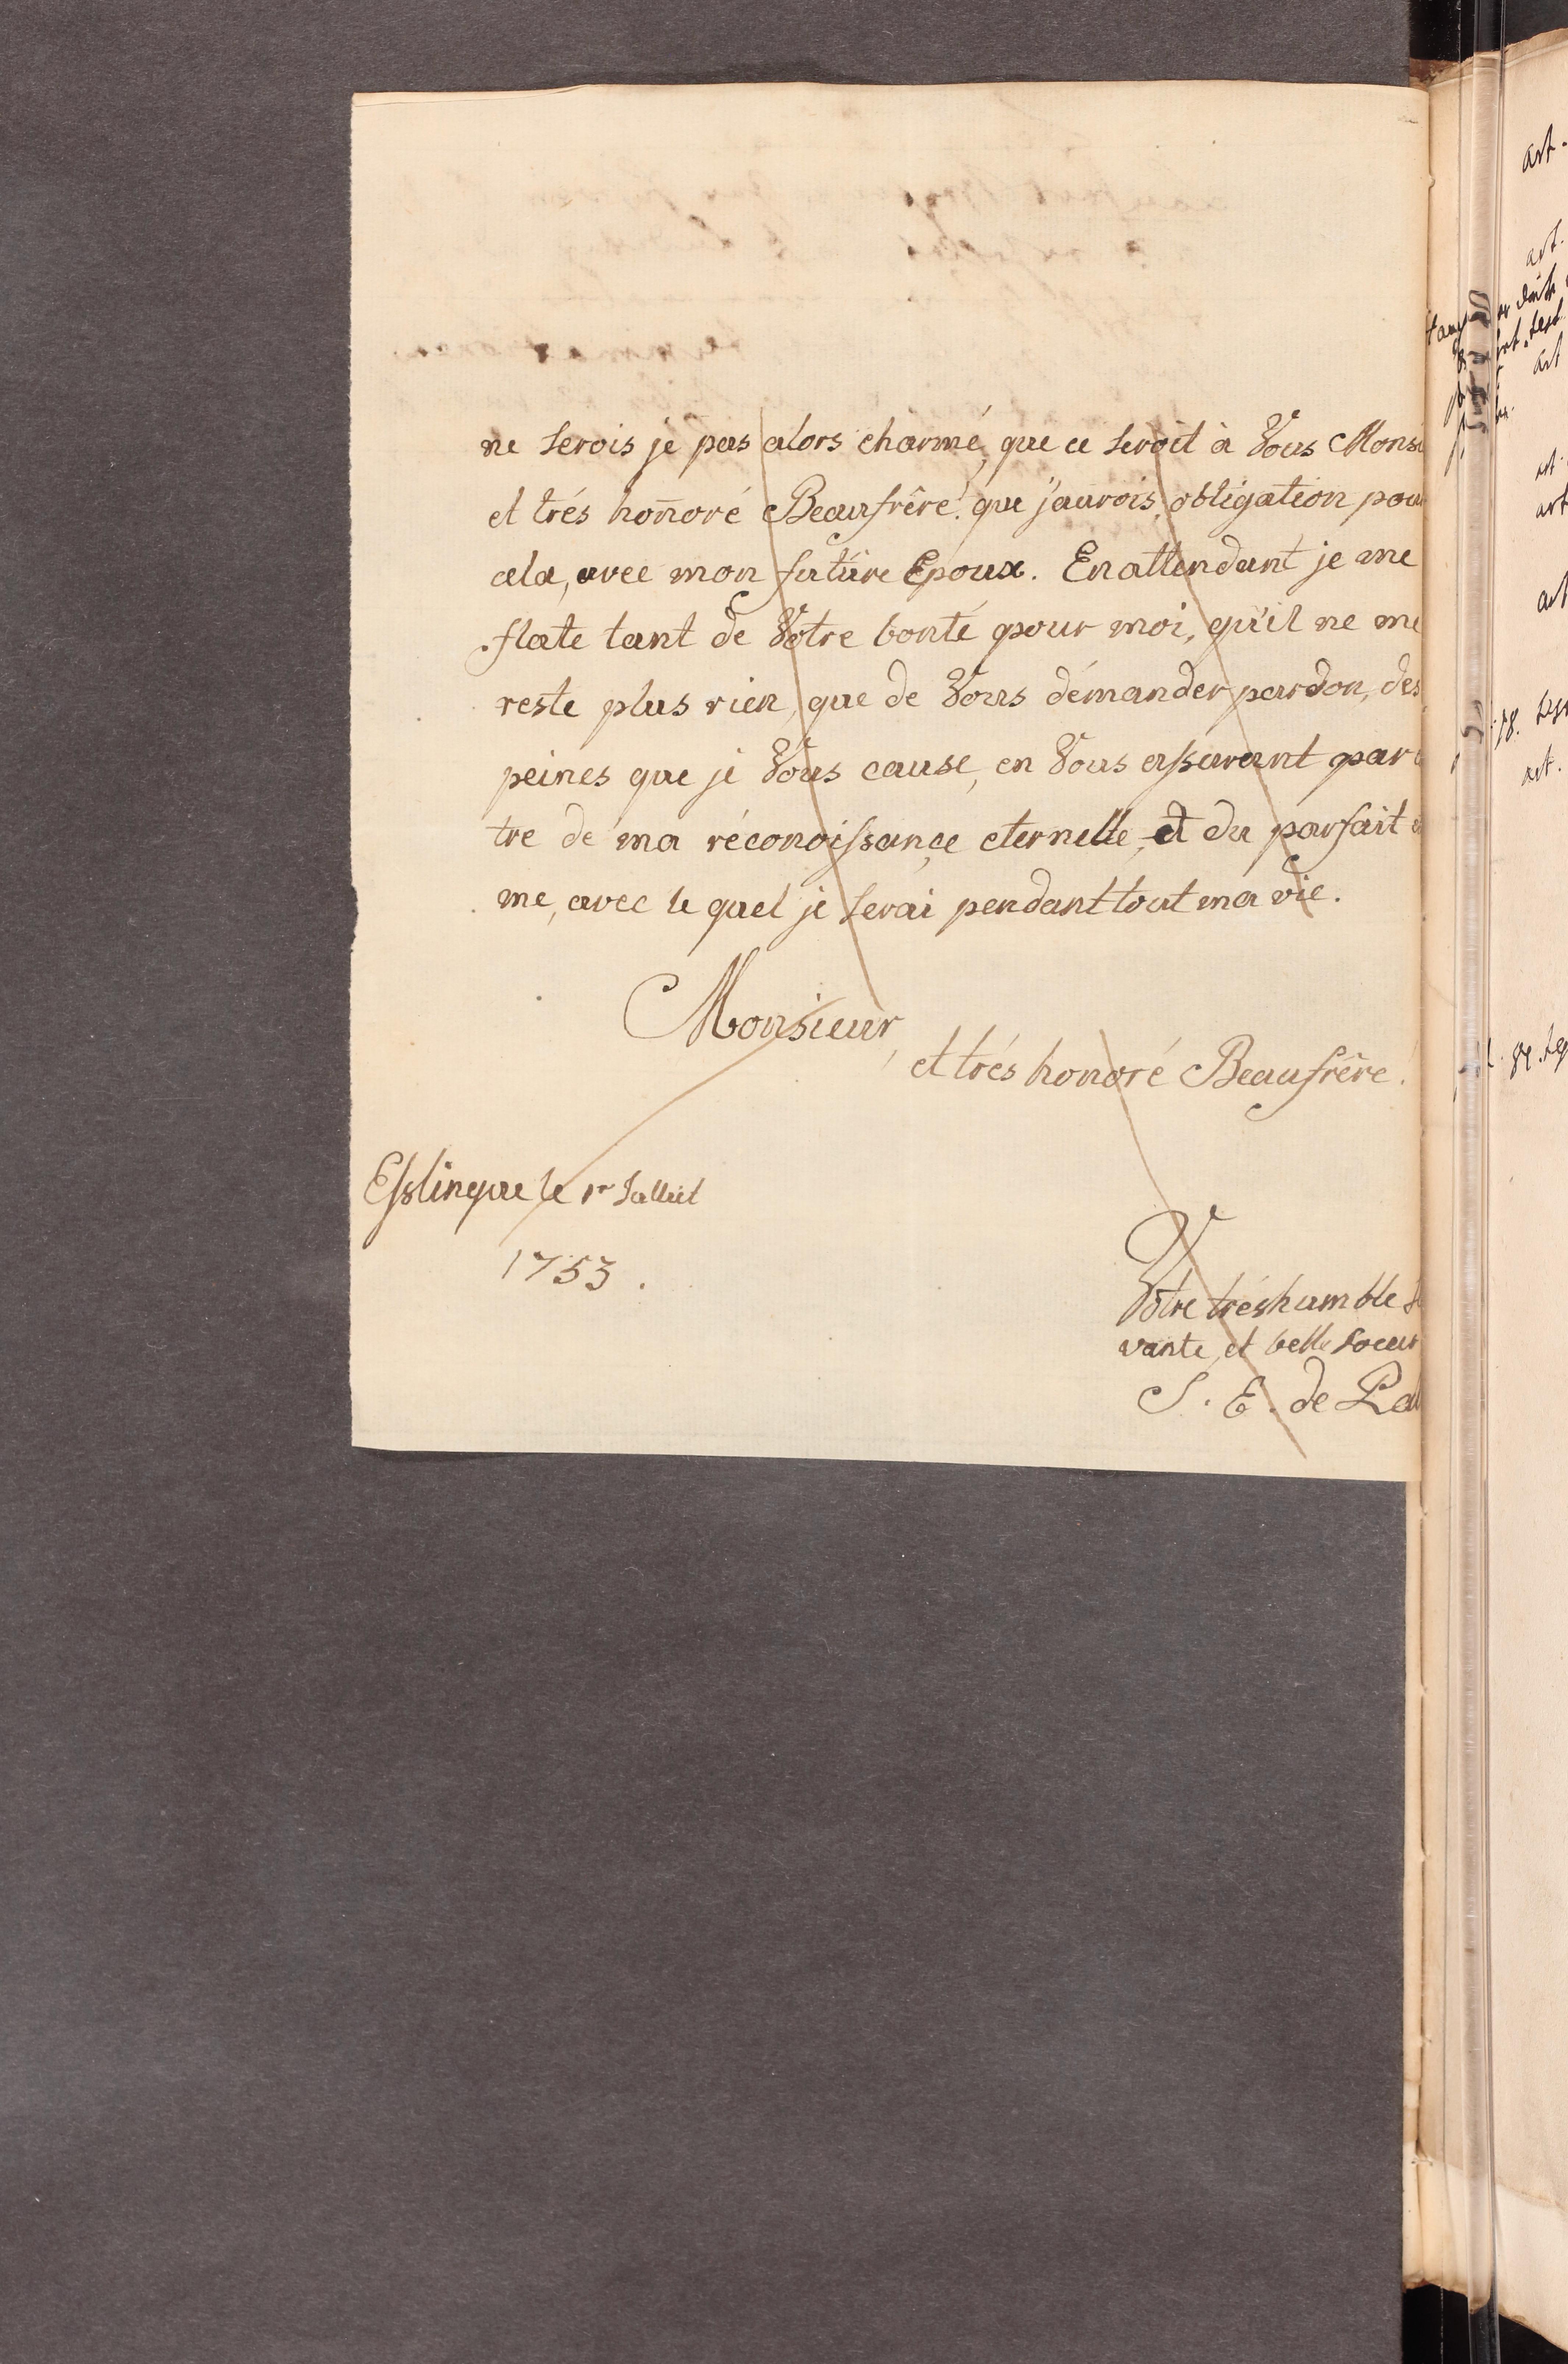 ne serois je pas alors charmé, que ce seroit à Vous Monsi
et trés hon̄oré Beaufrêre! que j'aurois, obligation pour
cela, avec mon futüre Epoux. En attendant je me
flate tant de Vôtre bonté pour moi, qu'il ne me
reste plus rien, que de Vous démander pardon, des
peines que je Vous cause, en Vous assurant par
tre de ma réconoissançe eternelle, et du parfait
me, avec le quel je serai pendant tout ma vie.
Monsieur,
et trés honoré Beaufrêre.
Esslingue le 1r Julliet
1753.
Vôtre tréshumble
vante, et belle soeur
S. E. de Pal
art.
art.
art
art.
art
art.